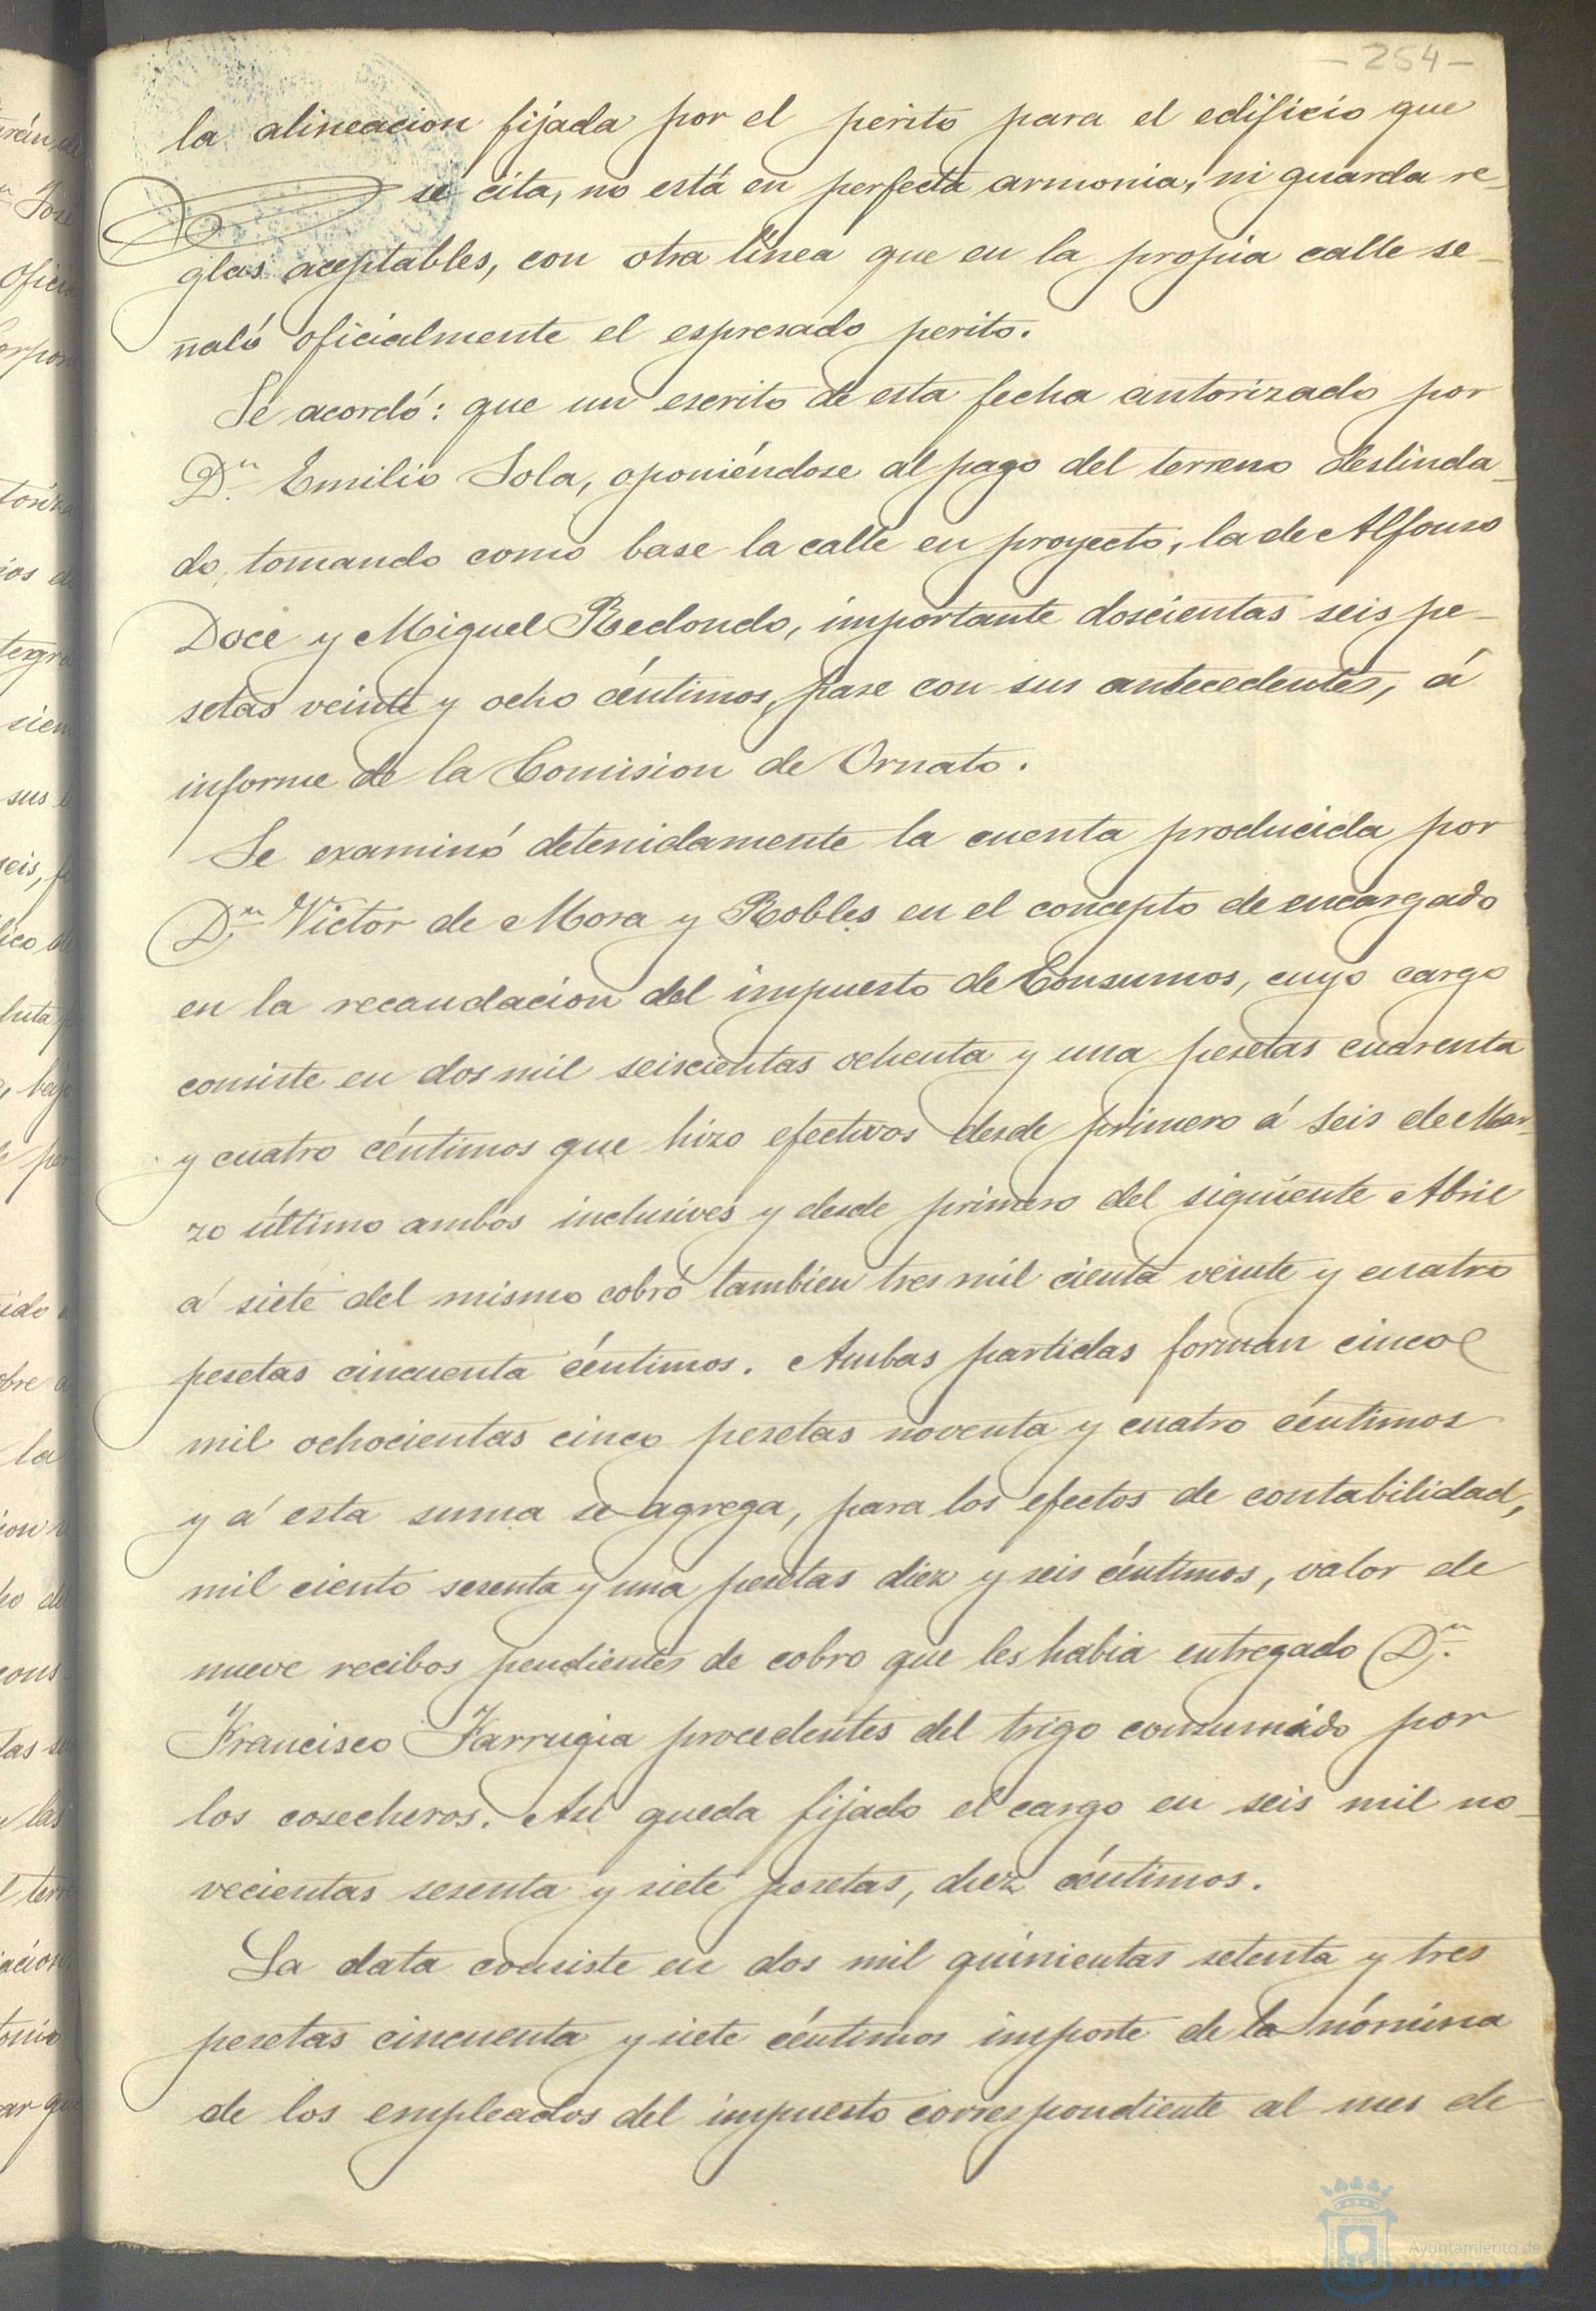 - 254 -
la alineacion fijada por el perito para el edificio que
se cita, no está en perfecta armonia, ni guarda re-
glas aceptables, con otra línea que en la propia calle se-
ñaló oficialmente el espresado perito.
Se acordó: que un escrito de esta fecha autorizado por
D.n Emilio Sola, oponiéndose al pago del terreno deslinda-
do, tomando como base la calle en proyecto, la de Alfonso
Doce y Miguel Redondo, importante doscientas seis pe-
setas veinte y ocho céntimos, pase con sus antecedentes, á
informe de la Comision de Ornato.
Se examinó detenidamente la cuenta producida por
D.n Victor de Mora y Robles en el concepto de encargado
en la recaudacion del impuesto de Consumos, cuyo cargo
consiste en dos mil seiscientas ochenta y una pesetas cuarenta
y cuatro céntimos que hizo efectivos desde primero á seis de Mar-
zo último ambos inclusives y desde primero del siguiente Abril
á siete del mismo cobró tambien tres mil cienta veinte y cuatro
pesetas cincuenta céntimos. Ambas partidas forman cinco
mil ochocientas cinco pesetas noventa y cuatro céntimos
y á esta suma se agrega, para los efectos de contabilidad,
mil ciento sesenta y una pesetas diez y seis céntimos, valor de
nueve recibos pendientes de cobro que les habia entregado D.n
Francisco Farrugia procedentes del trigo consumido por
los cosecheros. Así queda fijado el cargo en seis mil no-
vecientas sesenta y siete pesetas, diez céntimos.
La data consiste en dos mil quinientas setenta y tres
pesetas cincuenta y siete céntimos importe de la nómina
de los empleados del impuesto correspondiente al mes de
Ayuntamiento de
HUELVA